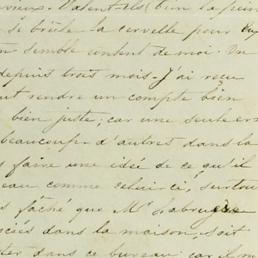 bien la pein
se brûle la cervelle pour
semble content de moi. Un
depuis trois mois. J'ai reçu
rendre un compte bien
bien juste; car une seule err
beaucoup d'autres dans la
faire une idée de ce qu'il
comme celui-ci, surtou
fâché que Mr Labru
ciés dans la maison, soit
dans ce bureau car il